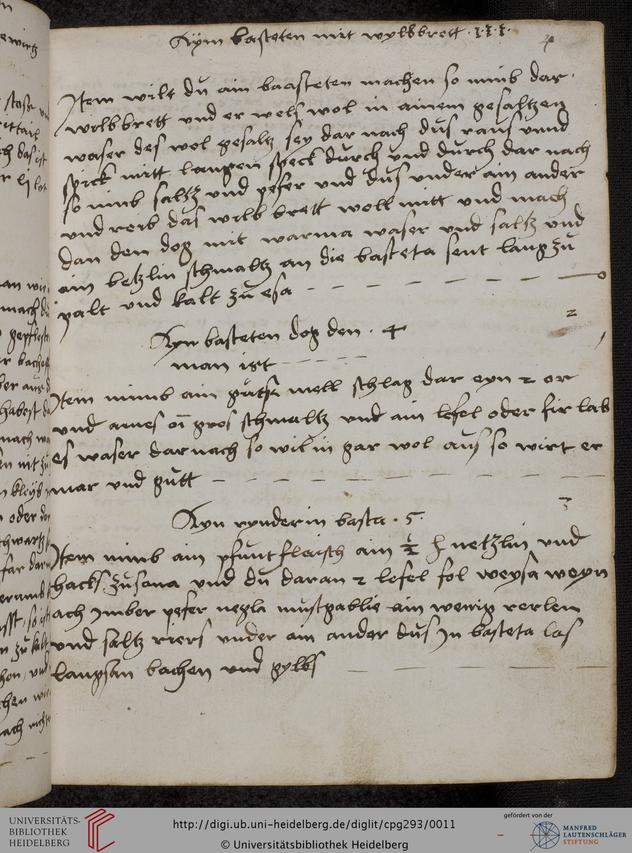 Aym basteten mit wylbbrett · 333 ·
Item wilt du ain baasteten machen so nimb dar
wilbbrett und er wels wol in ainem gesaltzen
waser des wol gesaltz sey dar nach dus raus unnd
spick mitt langen speck durch und durch dar nach
so nimb saltz und pefer und dus under ain ander
und reib das wilbbrett woll mitt und mach
dan den dog mit warma waser und saltz und
ain betzlin schmaltz an die basteta sent lang zu
palt und kalt zu esa
Ayn basteten dog den · 4
man ist
Item nimb ain mell schlag dar eyn 2 or
und ames gros schmaltz und ain lefel oder fir lab
es waser darnach so wil in gar wol aus so wirt er
mar und gutt
Ayn rynderin basta · 5
Item nimb ain pfunt fleisch ain 1/2 netzlin und
hacks zusana und du daran 2 lefel fol weysa weyn
ach ymber pefer negla mustgatblie ain wenig rerlen
und saltz riers under ain ander dus yn basteta las
langsam bachen und gylbs
UNIVERSITÄTS-
BIBLIOTHEK
HEIDELBERG
http://digi.ub.uni-heidelberg.de/diglit/cpg293/0011
© Universitätsbibliothek Heidelberg
gefördert von der
MANFRED
LAUTENSCHLÄGER
STIFTUNG